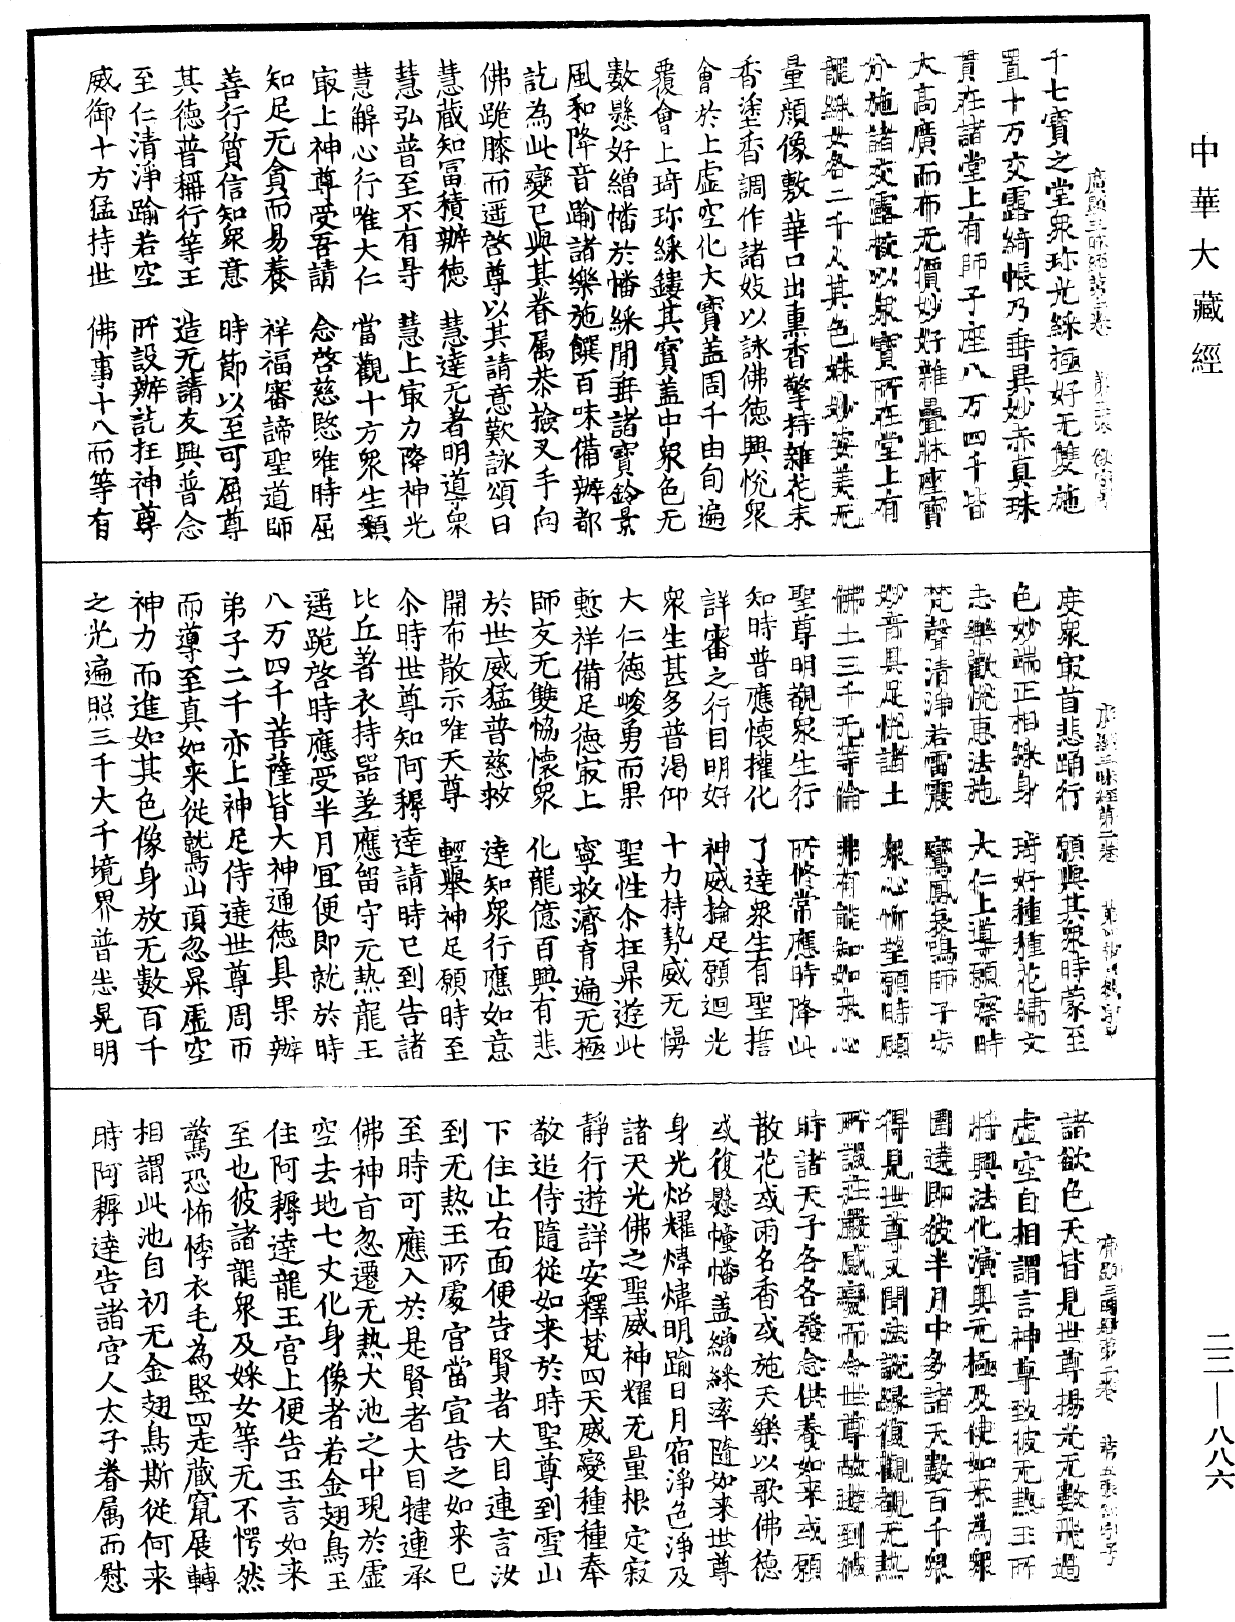 中華大藏經
千七寶之堂眾珎光綵極好无雙施
置十万交露綺帳乃垂異妙赤真珠
貫在諸堂上有師子座八万四千皆
大高廣而布无價妙好雜疊牀座寶
分施諸交露校以眾寶所在堂上有
龍綵女各二千人其色姝妙姿美无
量顔像敷華口出熏香擎持雜花末
香塗香調作諸妓以詠佛德興悅眾
會於上虛空化大寶盖周千由旬遍
覆會上琦珎綵鏤其寶盖中眾色无
數懸好繒幡於幡綵閒垂諸寶鈴景
風和降音踰諸樂施饌百味備辦都
訖為此變已與其眷属恭撿叉手向
佛跪膝而遥啓尊以其請意歎詠頌曰
慧藏知冨積辦德　慧達无者明道眾
慧弘普至不有㝵　慧上㝡力降神光
慧解心行唯大仁　當觀十方眾生類
㝡上神尊受吾請　念啓慈愍唯時屈
知足无貪而易養　祥福審諦聖道師
善行質信知眾意　時節以至可屈尊
其德普稱行等王　造无請友興普念
至仁清淨踰若空　所設辦訖抂神尊
威御十方猛持世　佛事十八而等有
度眾㝡首悲踊行　願與其眾時蒙至
色妙端正相緣身　琦好種種花繡文
志樂歡悅惠法施　大仁上導願察時
梵聲清淨若雷震　鸞鳳哀鳴師子步
妙音具足悅諸土　眾心悕望願時顧
佛土三千无等倫　弗有能知如來心
聖尊明觀眾生行　所修常應時降此
知時普應懷權化　了達眾生有聖誓
詳審之行目明好　神威掄足願迴光
眾生甚多普渴仰　十力持勢威无慢
大仁德峻勇而果　聖性尒抂昇遊此
慙祥備足德㝡上　寧救濟育遍无極
師友无雙恊懷眾　化龍億百興有悲
於世威猛普慈救　達知眾行應如意
開布散示唯天尊　輕舉神足願時至
尒時世尊知阿耨達請時已到告諸
比丘著衣持器差應留守无熱龍王
遥跪啓時應受半月冝便即就於時
八万四千菩薩皆大神通德具果辦
弟子二千亦上神足侍遶世尊周帀
而導至真如来從鷲山頂忽昇虛空
神力而進如其色像身放无數百千
之光遍照三千大千境界普悉晃明
諸欲色天皆見世尊揚光无數飛過
虛空自相謂言神尊致彼无熱王所
將興法化演興无極及使如来為眾
圍遶即彼半月中多諸天數百千眾
得見世尊又聞法說緣復觀覩无熱
所設莊嚴感變而令世尊故遊到彼
時諸天子各各發念供養如来或願
散花或雨名香或施天樂以歌佛德
或復懸幢幡盖繒綵率隨如来世尊
身光炤耀煒煒明踰日月宿淨色淨及
諸天光佛之聖威神耀无量根定寂
靜行遊詳安釋梵四天威變種種奉
敬追侍隨從如来於時聖尊到雪山
下住止右面便告賢者大目連言汝
到无熱王所處宮當宣告之如来已
至時可應入於是賢者大目揵連承
佛神旨忽遷无熱大池之中現於虛
空去地七丈化身像者若金翅鳥王
住阿耨達龍王宮上便告王言如来
至也彼諸龍眾及婇女等无不愕然
驚恐怖悸衣毛為竪四走藏竄展轉
相謂此池自初无金翅鳥斯從何来
時阿耨達告諸宮人太子眷属而慰
二二—八八六